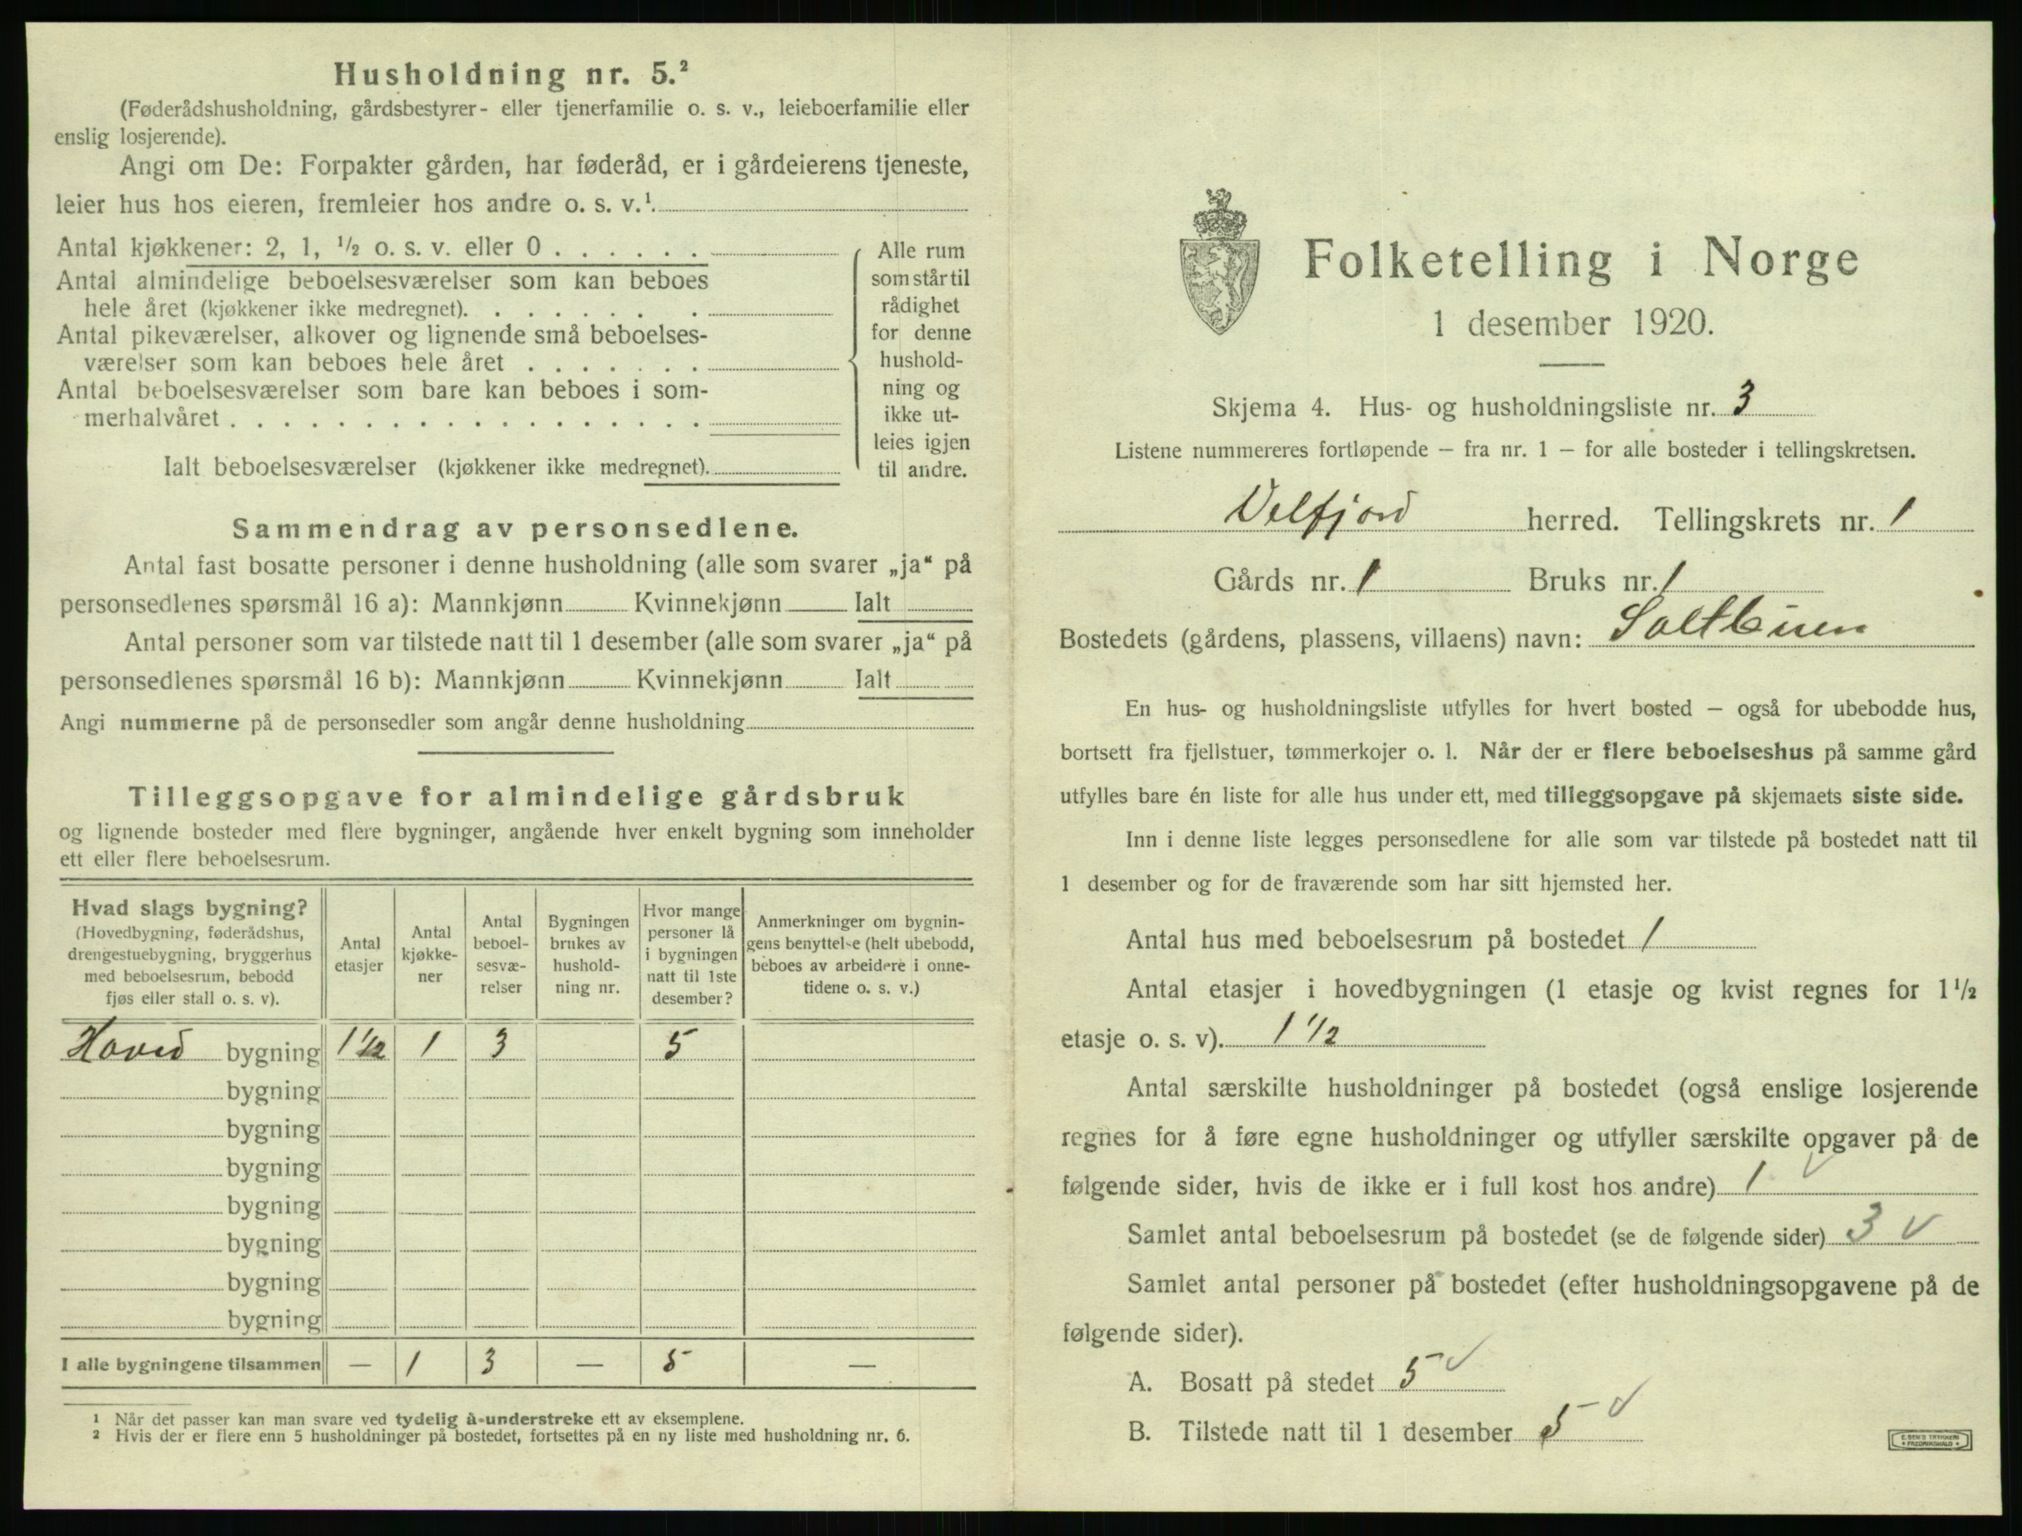 Husholdning nr. 5.²
(Føderådshusholdning, gårdsbestyrer- eller tjenerfamilie o. s. v., leieboerfamilie eller
enslig losjerende).
Angi om De: Forpakter gården, har føderåd, er i gårdeierens tjeneste,
leier hus hos eieren, fremleier hos andre o. s. v.¹.
Antal kjøkkener: 2, 1, ½ o. s. v. eller 0 . . . . . .
Antal almindelige beboelsesværelser som kan beboes
hele året (kjøkkener ikke medregnet). . . . . . . .
Antal pikeværelser, alkover og lignende små beboelses-
værelser som kan beboes hele året . . . . . . .
Antal beboelsesværelser som bare kan beboes i som-
merhalvåret . . . . . . . . . . . . . . . . . .
Ialt beboelsesværelser (kjøkkener ikke medregnet).
Alle rum
som står til
rådighet
for denne
hushold-
ning og
ikke ut-
leies igjen
til andre.
Sammendrag av personsedlene.
Antal fast bosatte personer i denne husholdning (alle som svarer „ja“ på
personsedlenes spørsmål 16 a): Mannkjønn Kvinnekjønn Ialt
Antal personer som var tilstede natt til 1 desember (alle som svarer „ja“ på
personsedlenes spørsmål 16 b): Mannkjønn Kvinnekjønn Ialt
Angi nummerne på de personsedler som angår denne husholdning
Tilleggsopgave for almindelige gårdsbruk
og lignende bosteder med flere bygninger, angående hver enkelt bygning som inneholder
ett eller flere beboelsesrum.
Hvad slags bygning?
(Hovedbygning, føderådshus,
drengestuebygning, bryggerhus
med beboelsesrum, bebodd
fjøs eller stall o. s. v).
Antal
etasjer
Antal
kjøkke-
ner
Antal
beboel-
sesvæ-
relser
Bygningen
brukes av
hushold-
ning nr.
Hvor mange
personer lå
i bygningen
natt til 1ste
desember?
Anmerkninger om bygnin-
gens benyttelse (helt ubebodd,
beboes av arbeidere i onne-
tidene o. s. v.)
Hoved bygning 1½ 1 3 5
bygning
bygning
bygning
bygning
bygning
bygning
bygning
I alle bygningene tilsammen — 1 3 — 5 —
¹ Når det passer kan man svare ved tydelig å understreke ett av eksemplene.
² Hvis der er flere enn 5 husholdninger på bostedet, fortsettes på en ny liste med husholdning nr. 6.
Folketelling i Norge
1 desember 1920.
Skjema 4. Hus- og husholdningsliste nr. 3
Listene nummereres fortløpende – fra nr. 1 – for alle bosteder i tellingskretsen.
Velfjord herred. Tellingskrets nr. 1
Gårds nr. 1 Bruks nr. 1
Bostedets (gårdens, plassens, villaens) navn: Saltbuen
En hus- og husholdningsliste utfylles for hvert bosted – også for ubebodde hus,
bortsett fra fjellstuer, tømmerkojer o. l. Når der er flere beboelseshus på samme gård
utfylles bare én liste for alle hus under ett, med tilleggsopgave på skjemaets siste side.
Inn i denne liste legges personsedlene for alle som var tilstede på bostedet natt til
1 desember og for de fraværende som har sitt hjemsted her.
Antal hus med beboelsesrum på bostedet 1
Antal etasjer i hovedbygningen (1 etasje og kvist regnes for 1½
etasje o. s. v). 1½
Antal særskilte husholdninger på bostedet (også enslige losjerende
regnes for å føre egne husholdninger og utfyller særskilte opgaver på de
følgende sider, hvis de ikke er i full kost hos andre) 1 ✓
Samlet antal beboelsesrum på bostedet (se de følgende sider) 3 ✓
Samlet antal personer på bostedet (efter husholdningsopgavene på de
følgende sider).
A. Bosatt på stedet 5 ✓
B. Tilstede natt til 1 desember 5 ✓